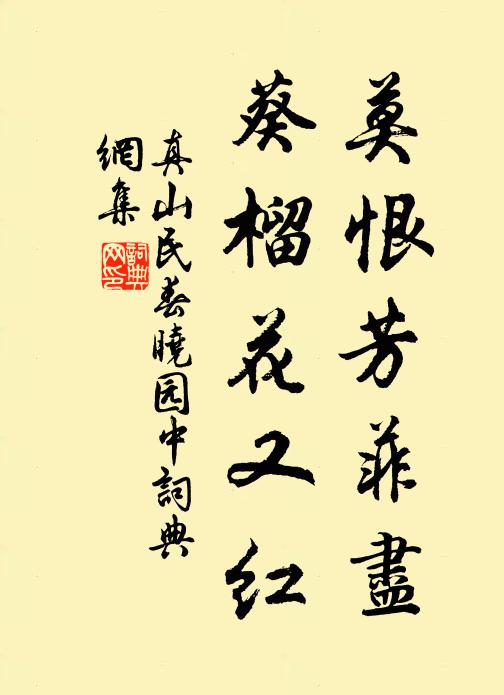 莫恨芳菲盡
葵榴花又红
真山民春曉园中詞典
網集
詞典网印